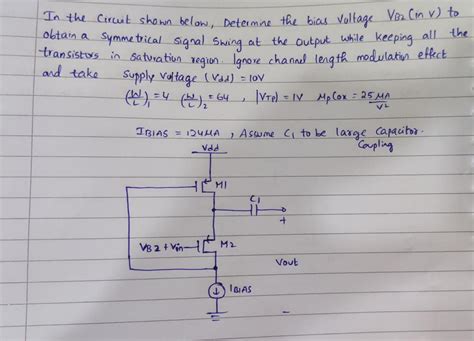 In the Circuit shown below, Determine the bias Voltage VB2 (in V) to
obtain a Symmetrical Signal Swing at the Output while keeping all the
transistors in Saturation region. Ignore channel length modulation effect
and take Supply Voltage (Vdd) = 10V
(W/L)1 = 4 (W/L)2 = 64, |VTP| = 1V μpCox = 25 μA/V²
IBIAS = 124μA, Assume C1 to be large Capacitor.
Coupling
Vdd
M1
C1
+
VB2 + Vin
M2
Vout
IBIAS
-